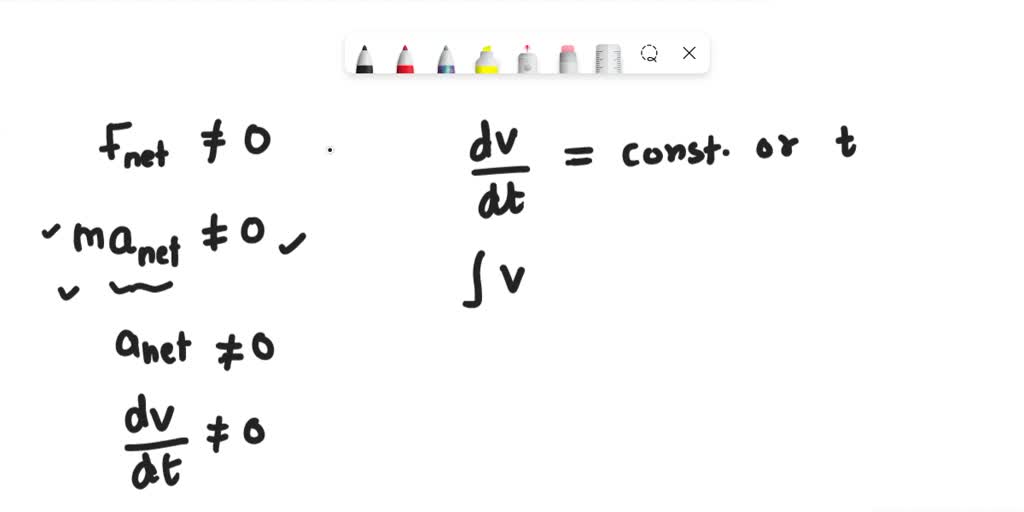 F_net ≠ 0
ma_net ≠ 0
a_net ≠ 0
dv/dt ≠ 0
dv/dt = const. or t
∫ v